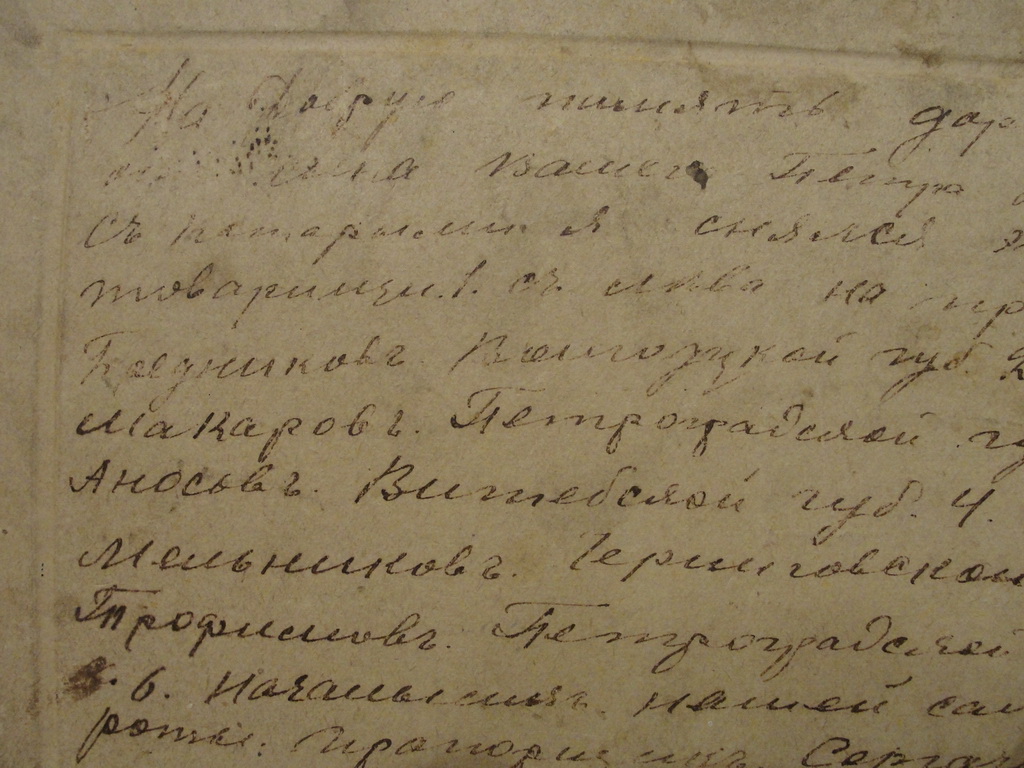 На Добрую память дор
сына вашего Петра
съ которыми я снялся
товарищи. 1. съ лева на пр
Бедниковъ. Вологоцкой губ. 2
Макаровъ. Петроградской гу
Аносовъ. Витебской губ. 4.
Мельниковъ. Черниговской
Трофимовъ. Петроградской
6. Начальникъ нашей сап
роты: Прапорщикъ. Серга